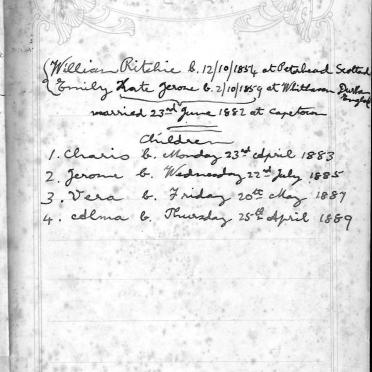 William Ritchie b. 12/10/1854 at Peterhead Scotland
& Emily Kate Jerome b. 2/10/1859 at Whitharn Durham England
married 23rd June 1882 at Capetown
Children
1. Charis b. Monday 23rd April 1883
2. Jerome b. Wednesday 22nd July 1885
3. Vera b. Friday 20th May 1887
4. Alma b. Thursday 25th April 1889